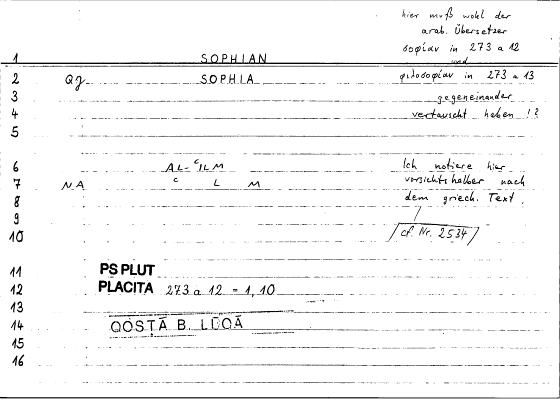 hier muß wohl der
arab. Übersetzer
σοφίαν in 273 a 12
und
φιλοσοφίαν in 273 a 13
gegeneinander
vertauscht haben !?
1 SOPHIAN
2 Qγ SOPHIA
3
4
5
6 AL-ʿILM
7 NA ʿ L M
8
9
10
Ich notiere hier
vorsichtshalber nach
dem griech. Text.
/cf. Nr. 2534/
11 PS PLUT
12 PLACITA 273 a 12 = 1, 10
13
14 QOSṬĀ B. LŪQĀ
15
16